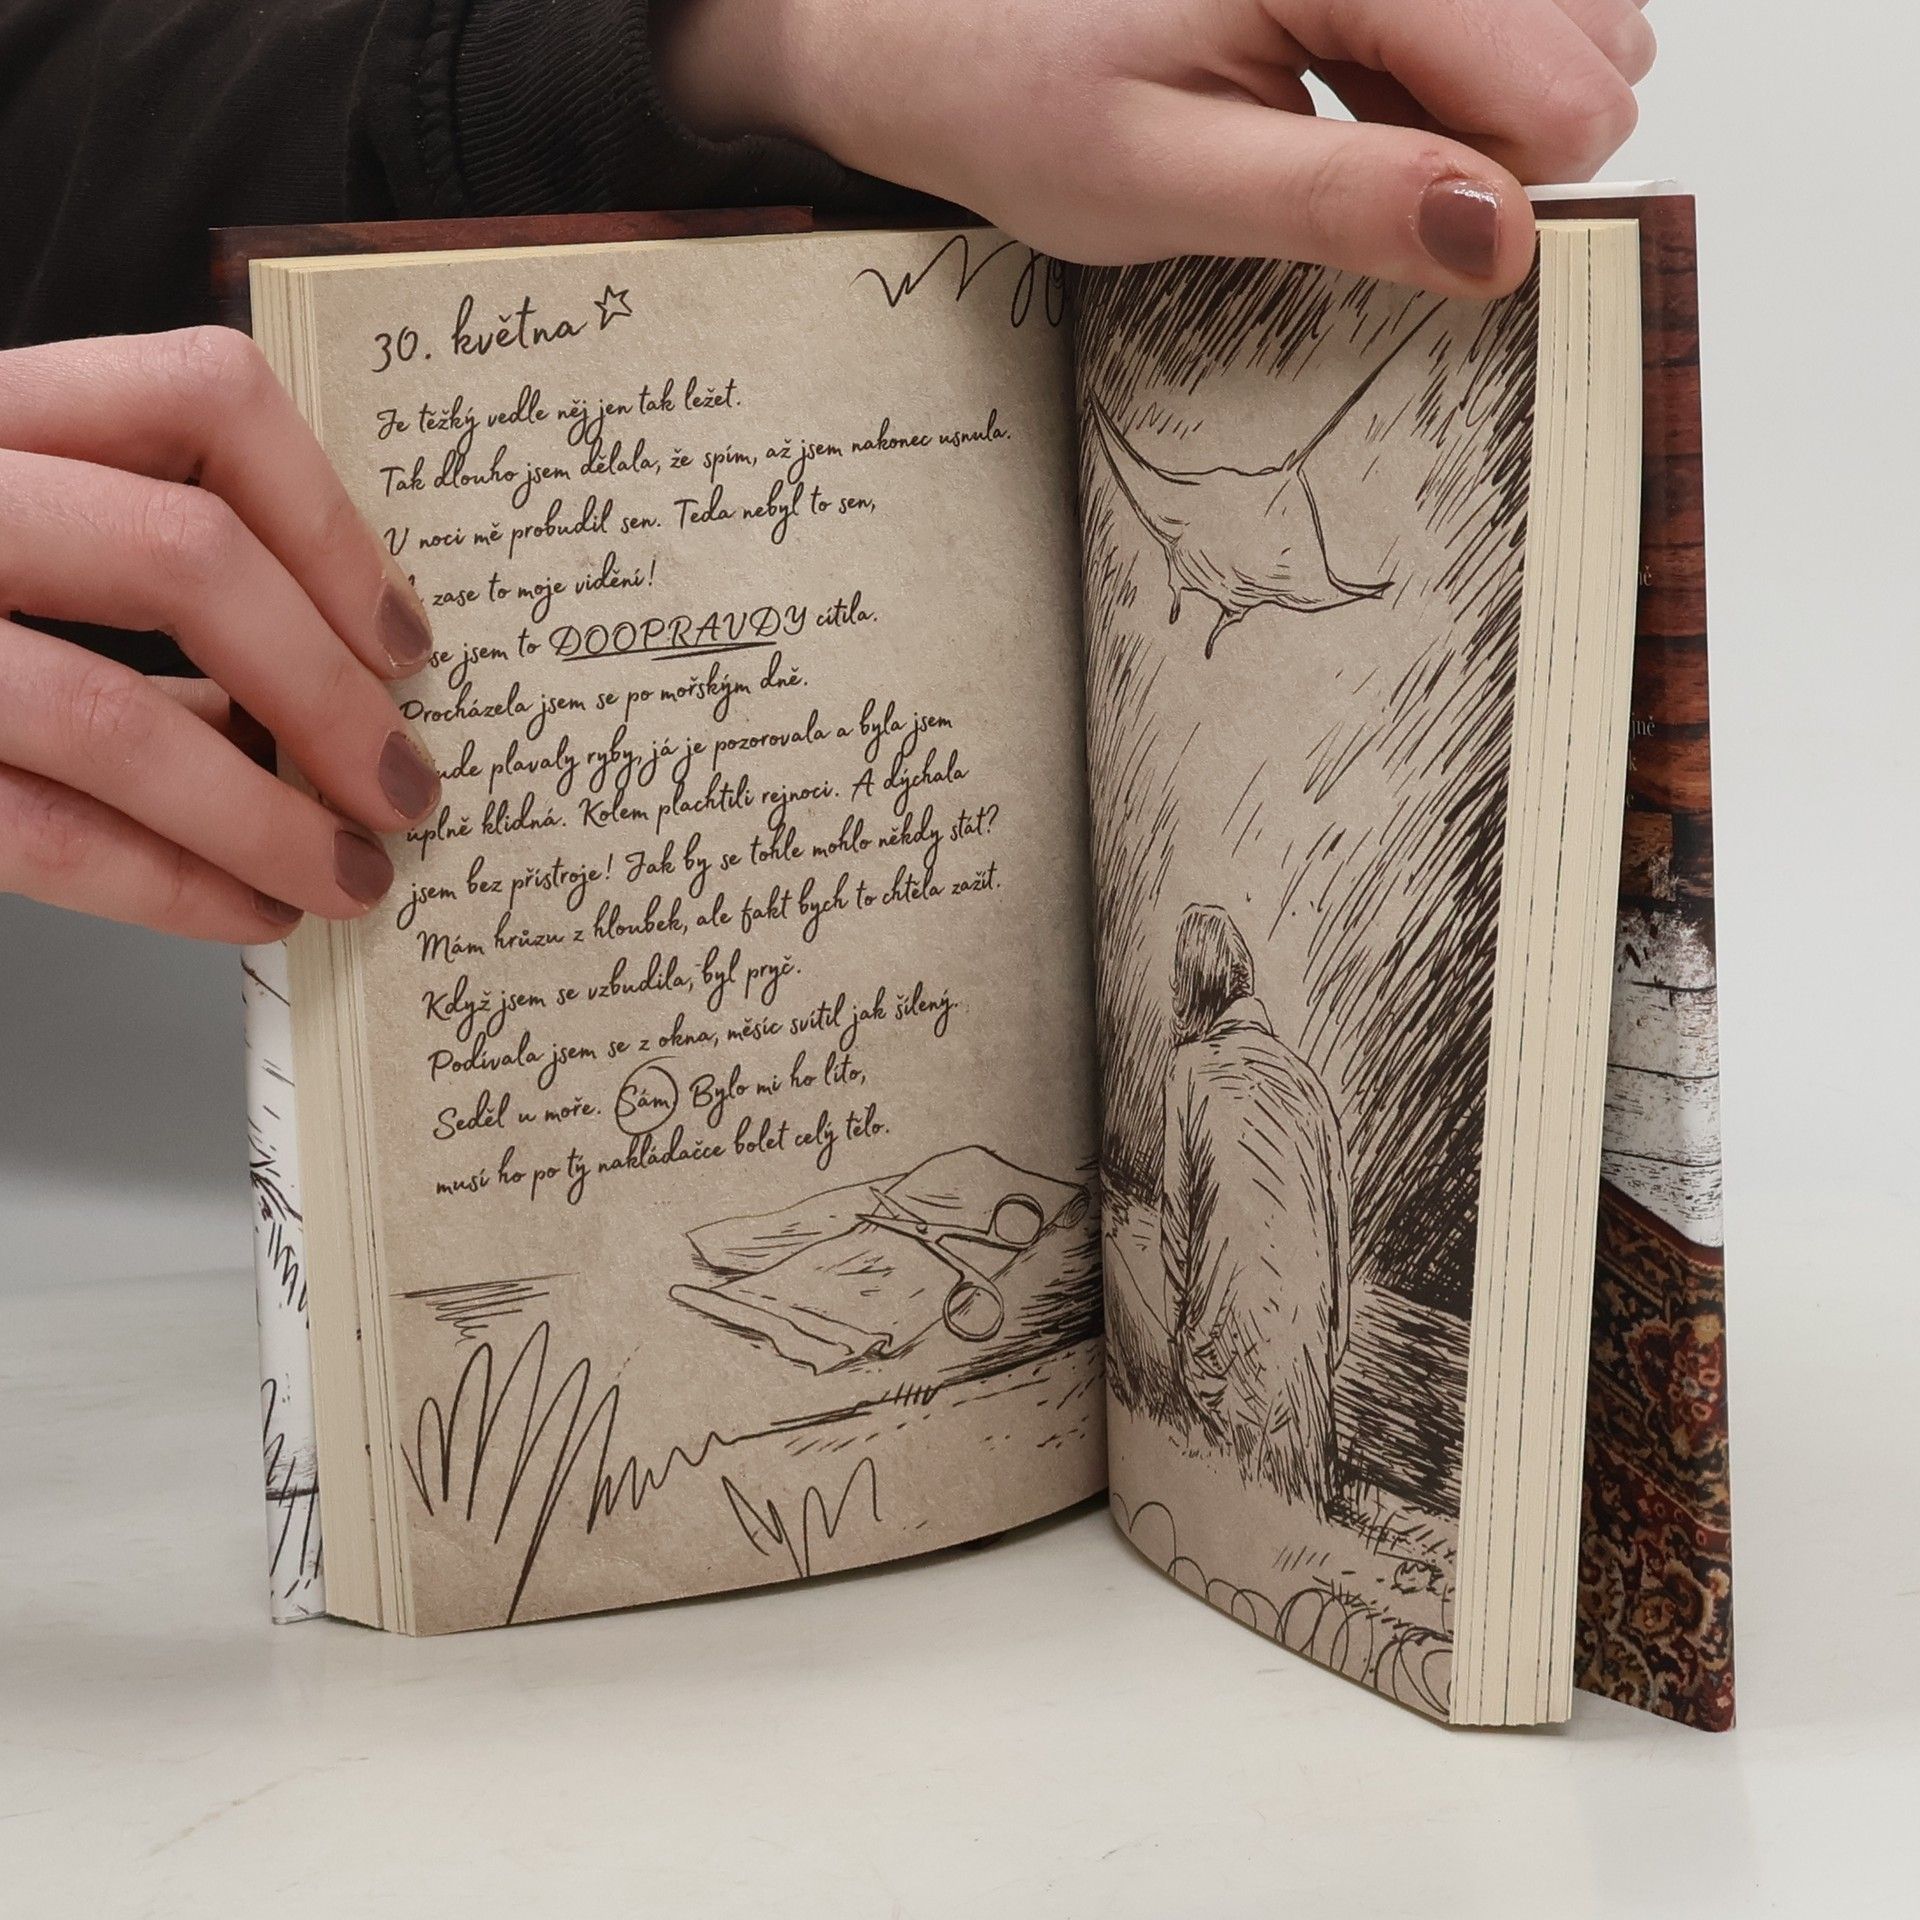 30. května
Je těžký vedle něj jen tak ležet.
Tak dlouho jsem dělala, že spím, až jsem nakonec usnula.
V noci mě probudil sen. Teda nebyl to sen,
zase to moje vidění!
se jsem to DOOPRAVDY cítila.
Procházela jsem se po mořským dně.
ude plavaly ryby, já je pozorovala a byla jsem
úplně klidná. Kolem plachtili rejnoci. A dýchala
jsem bez přístroje! Jak by se tohle mohlo někdy stát?
Mám hrůzu z hloubek, ale fakt bych to chtěla zažít.
Když jsem se vzbudila, byl pryč.
Podívala jsem se z okna, měsíc svítil jak šílený.
Seděl u moře. Sám. Bylo mi ho líto,
musí ho po tý nakládačce bolet celý tělo.